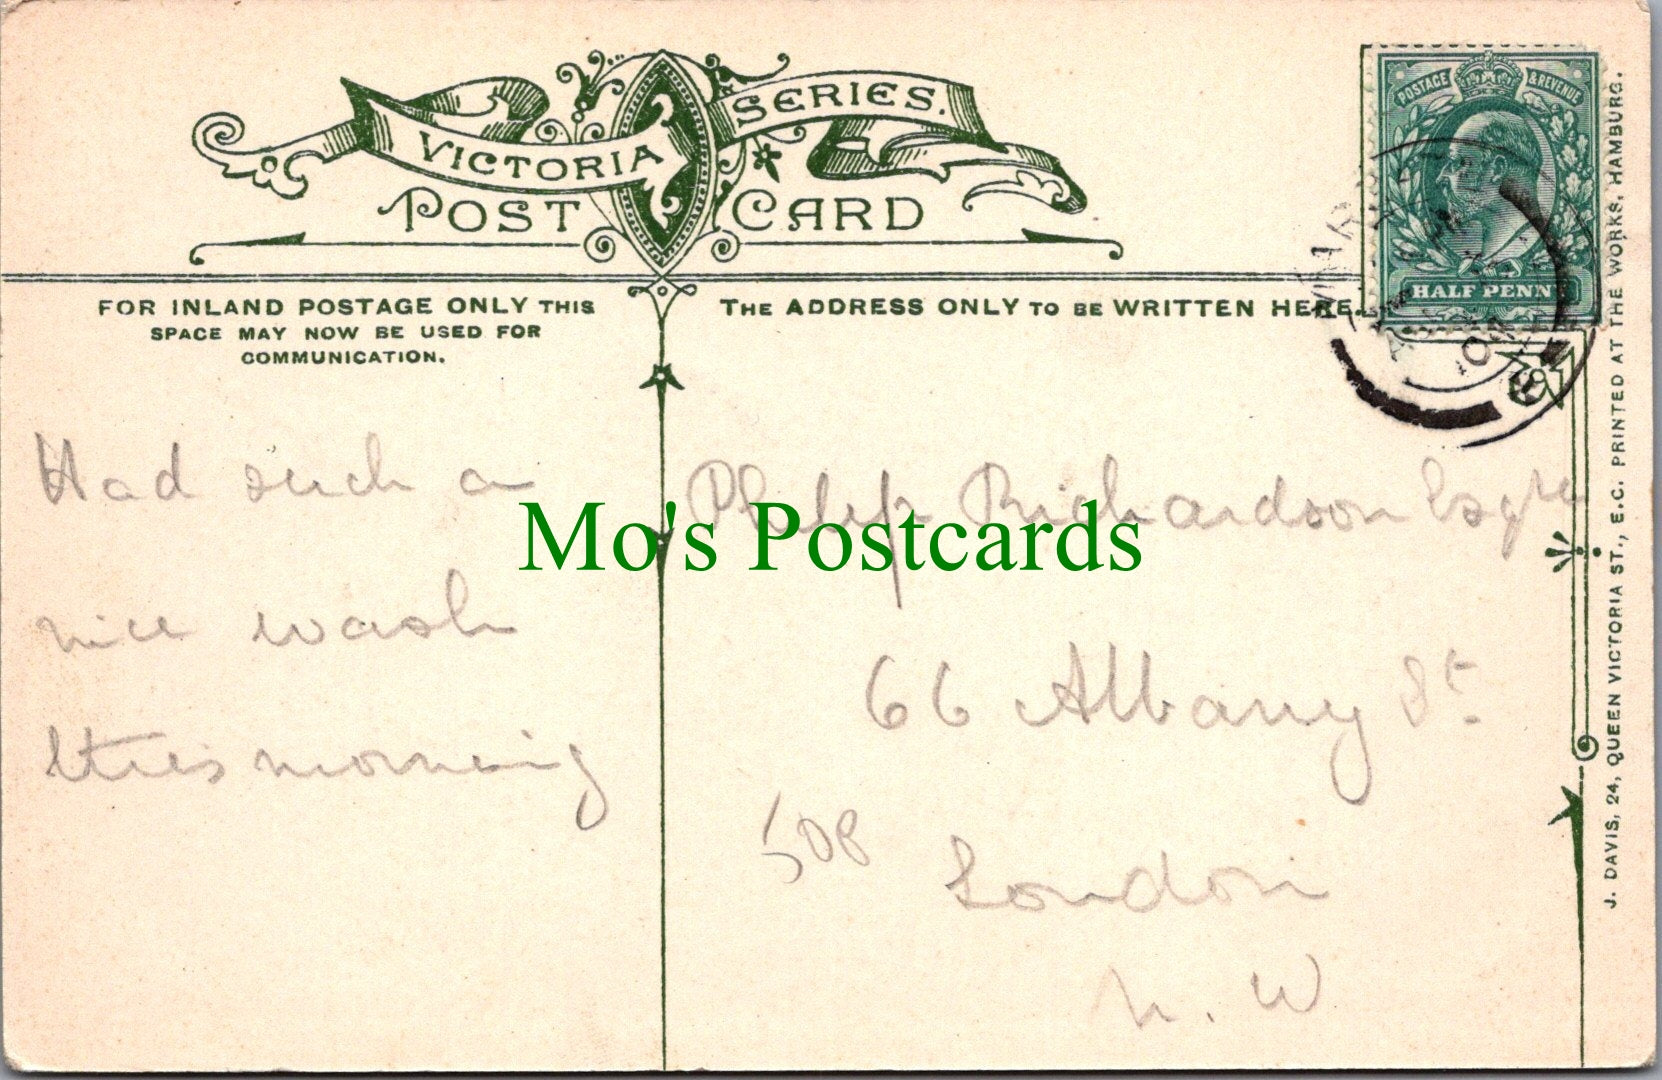 VICTORIA SERIES.
POST CARD
FOR INLAND POSTAGE ONLY THIS
SPACE MAY NOW BE USED FOR
COMMUNICATION.
THE ADDRESS ONLY TO BE WRITTEN HERE.
POSTAGE & REVENUE
HALF PENNY
Had such a
nice wash
this morning
Philip Richardson Esqre
66 Albany St.
London
N. W
Mo's Postcards
J. DAVIS, 24, QUEEN VICTORIA ST., E.C. PRINTED AT THE WORKS, HAMBURG.